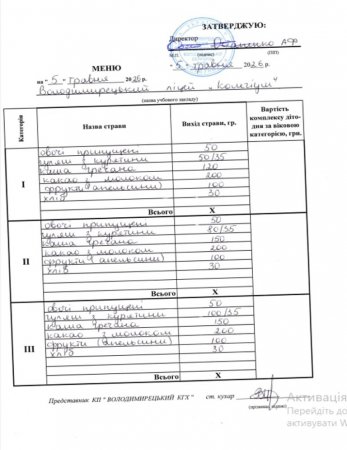 ЗАТВЕРДЖУЮ:
Директор
(підпис) (ПІП)
МЕНЮ
на "5" травня 2026р.
"5" травня 2026
Володимирецький ліцей „Колегіум"
(назва учбового закладу)
Категорія
Назва страви
Вихід страви, гр.
Вартість комплексу діто-дня за віковою категорією, грн.
I
овочі припущені 50
гуляш з курятини 50/35
каша гречана 120
какао з молоком 200
фрукти (апельсини) 100
хліб 30
Всього X
II
овочі припущені 50
гуляш з курятини 80/35
каша гречана 150
какао з молоком 200
фрукти (апельсини) 100
хліб 30
Всього X
III
овочі припущені 50
гуляш з курятини 100/35
каша гречана 150
какао з молоком 200
фрукти (апельсини) 100
хліб 30
Всього X
Представник КП " ВОЛОДИМИРЕЦЬКИЙ КГХ " ст. кухар
(прізвище, підпис)
Активація
Перейдіть до
активувати W